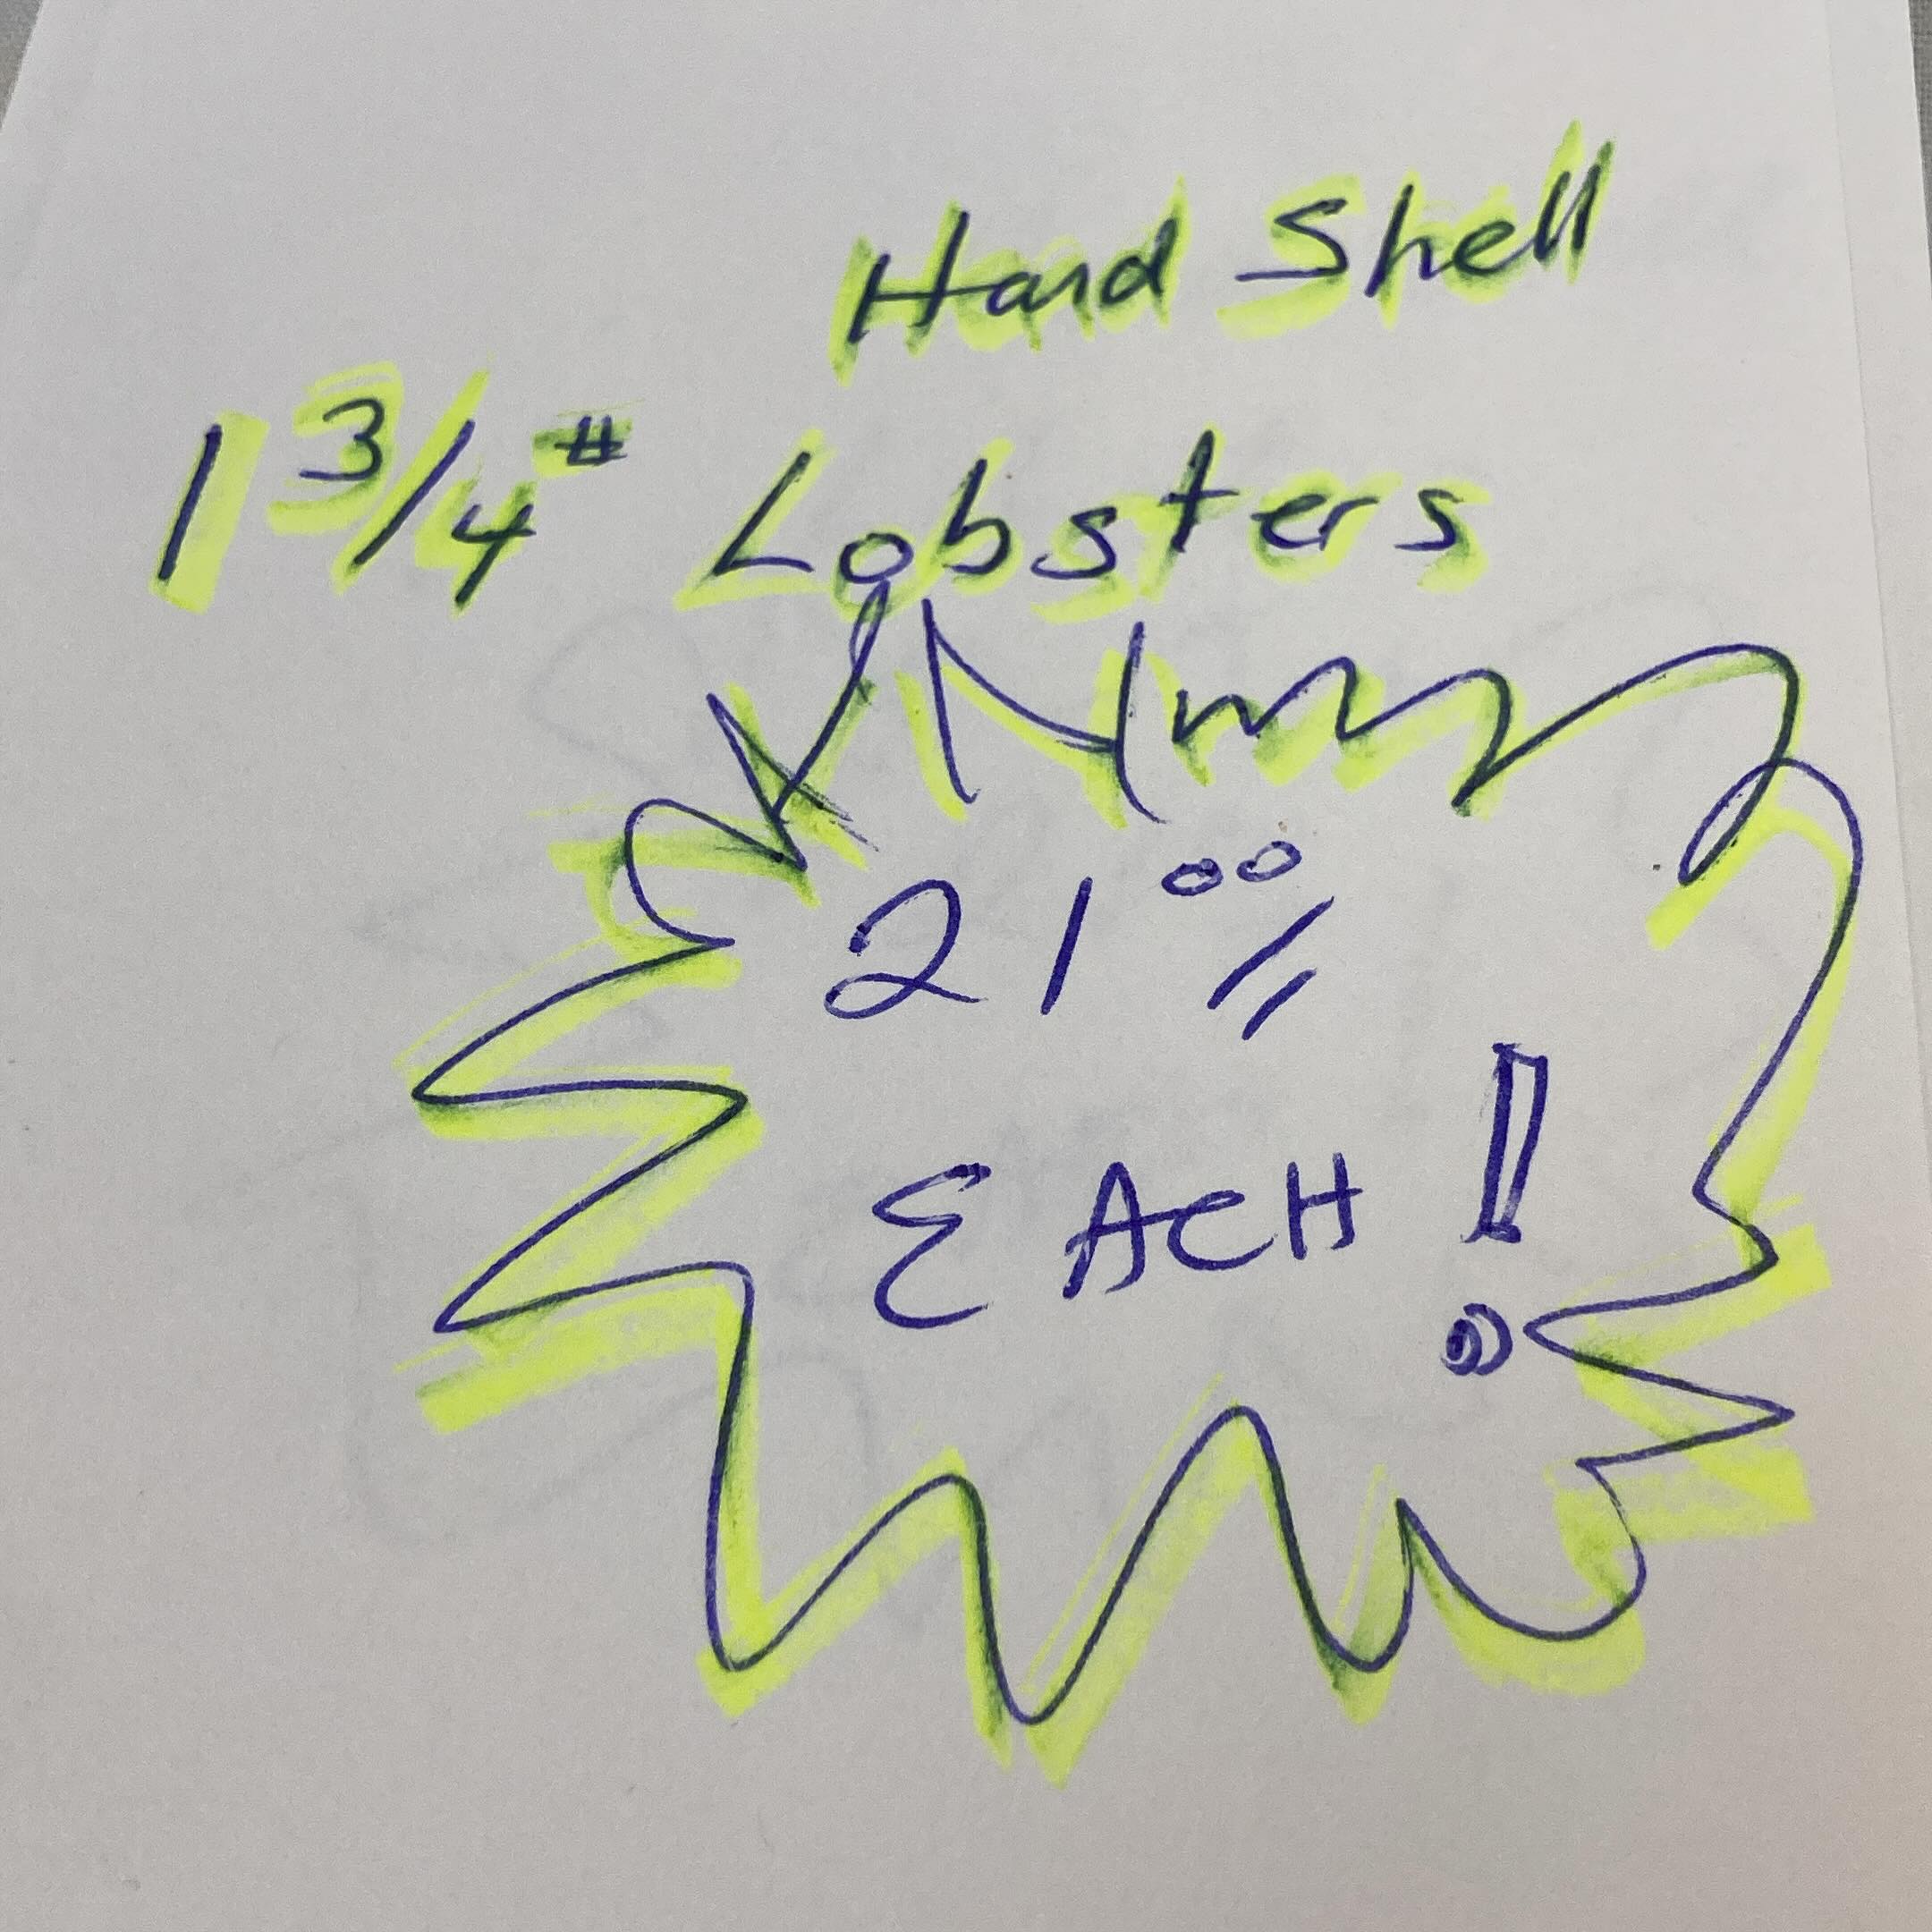 Hard Shell
1 3/4# Lobsters
21 00
EACH!